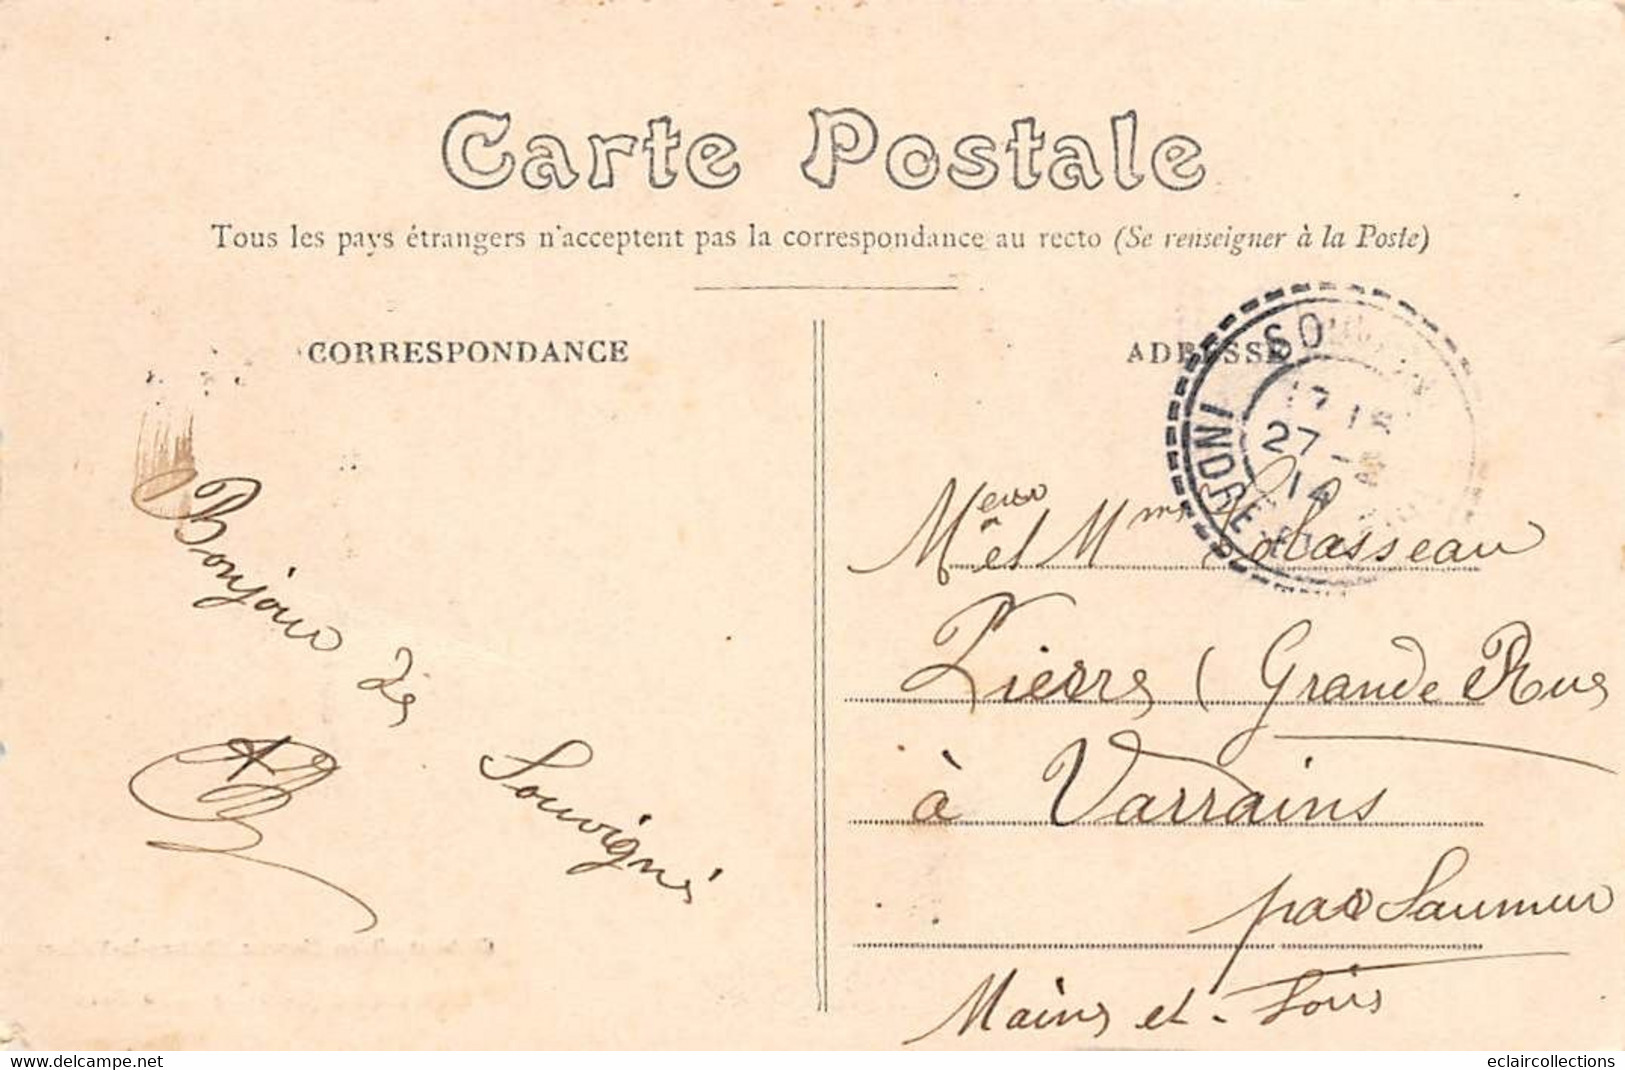 Carte Postale
Tous les pays étrangers n'acceptent pas la correspondance au recto (Se renseigner à la Poste)
CORRESPONDANCE
ADRESSE
INDRE-ET-
27
14
Bonjour de
Souvigné
et Mme
Pierre (Grande Rue
à Varrains
par Saumur
Maine et Loire
www.delcampe.net
eclaircollections